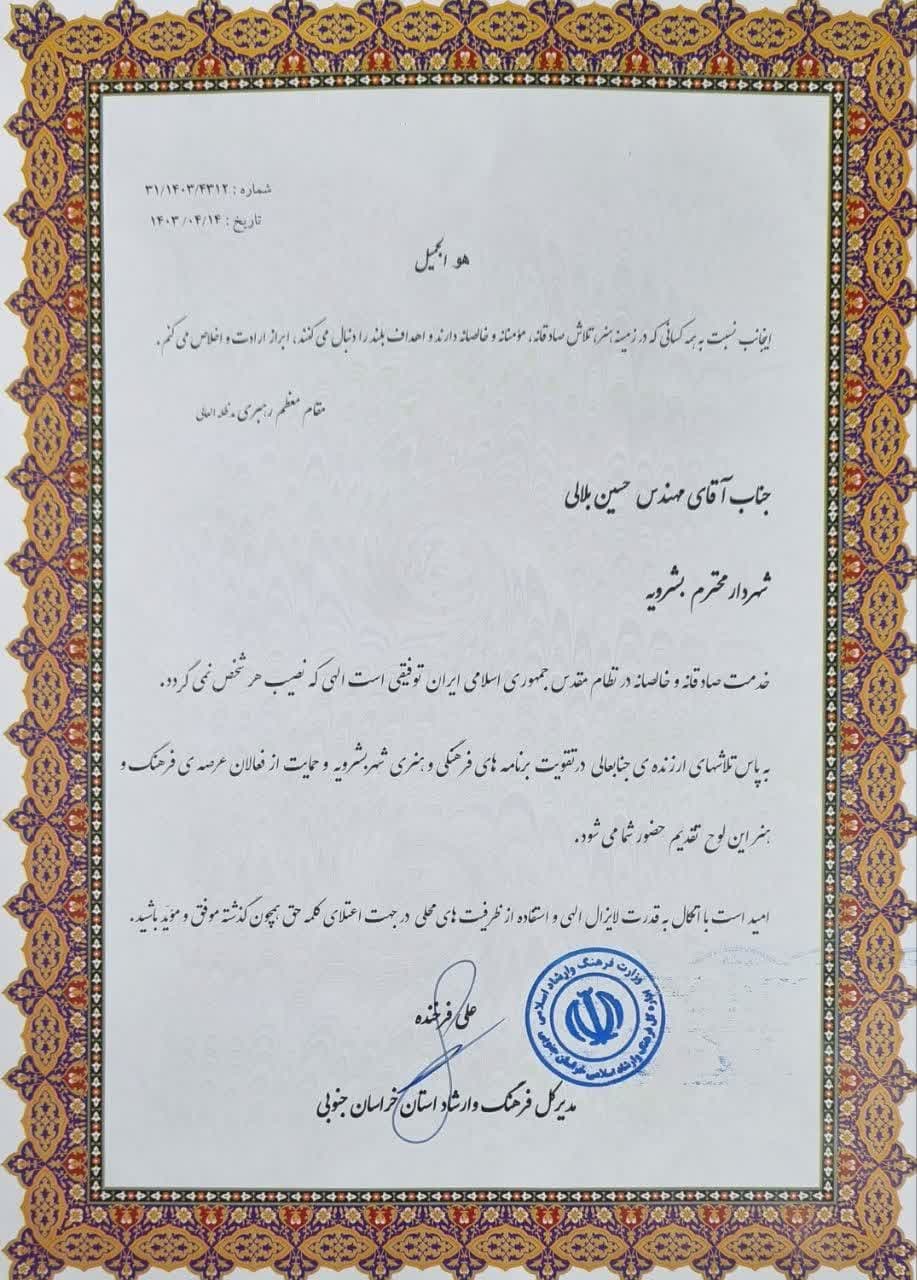 شماره : ۳۱/۱۴۰۳/۴۳۱۲
تاریخ : ۱۴۰۳/۰۴/۱۴
هو الجمیل
اینجانب نسبت به همه کسانی که در زمینه هنر، تلاش صادقانه، مؤمنانه و خالصانه دارند و اهداف بلند را دنبال می کنند، ابراز ارادت و اخلاص می کنم.
مقام معظم رهبری مدظله العالی
جناب آقای مهندس حسین بلالی
شهردار محترم بشرویه
خدمت صادقانه و خالصانه در نظام مقدس جمهوری اسلامی ایران توفیقی است الهی که نصیب هر شخص نمی گردد.
به پاس تلاشهای ارزنده ی جنابعالی درتقویت برنامه های فرهنگی و هنری شهربشرویه و حمایت از فعالان عرصه ی فرهنگ و
هنر این لوح تقدیم حضور شما می شود.
امید است با اتکال به قدرت لایزال الهی و استفاده از ظرفیت های محلی در جهت اعتلای کلمه حق همچون گذشته موفق و مؤید باشید.
وزارت فرهنگ وارشاد اسلامی
اداره کل فرهنگ وارشاد اسلامی خراسان جنوبی
علی فرخنده
مدیرکل فرهنگ وارشاد استان خراسان جنوبی